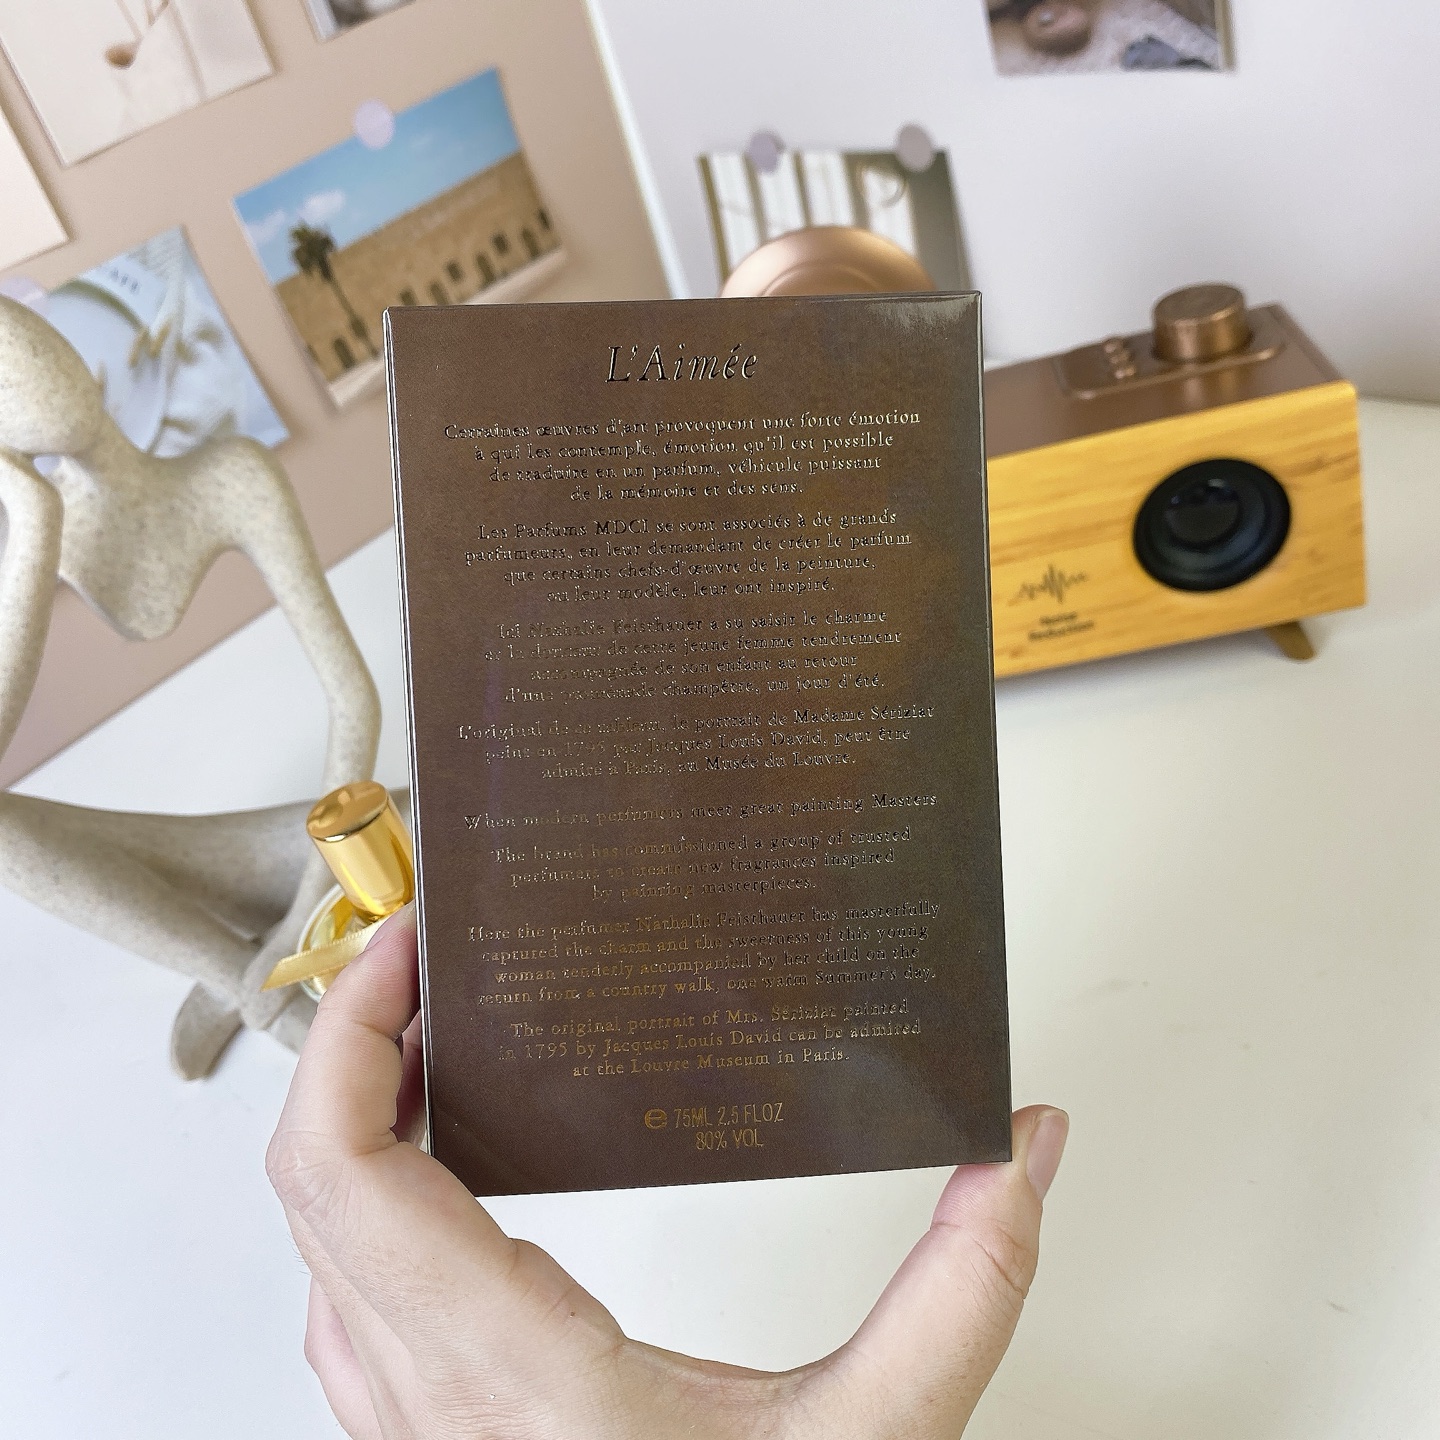 L'Aimée
Certaines œuvres d'art provoquent une forte émotion
à qui les contemple, émotion qu'il est possible
de traduire en un parfum, véhicule puissant
de la mémoire et des sens.
Les Parfums MDCI se sont associés à de grands
parfumeurs, en leur demandant de créer le parfum
que certains chefs-d'œuvre de la peinture,
ou leur modèle, leur ont inspiré.
Ici Nathalie Feisthauer a su saisir le charme
et la douceur de cette jeune femme tendrement
accompagnée de son enfant au retour
d'une promenade champêtre, un jour d'été.
L'original de ce tableau, le portrait de Madame Sériziat
peint en 1795 par Jacques Louis David, peut être
admiré à Paris, au Musée du Louvre.
When modern perfumers meet great painting Masters
The brand has commissioned a group of trusted
perfumers to create new fragrances inspired
by painting masterpieces.
Here the perfumer Nathalie Feisthauer has masterfully
captured the charm and the sweetness of this young
woman tenderly accompanied by her child on the
return from a country walk, one warm Summer's day.
The original portrait of Mrs. Sériziat painted
in 1795 by Jacques Louis David can be admired
at the Louvre Museum in Paris.
℮ 75ML 2.5 FLOZ
80% VOL
Noise
Reduction